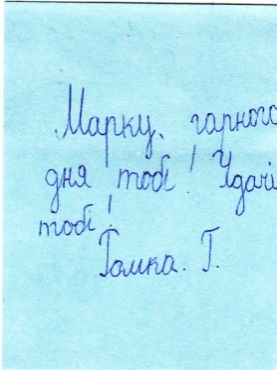 Марку, гарного
дня тобі! Удачі
тобі!
Томка. Т.